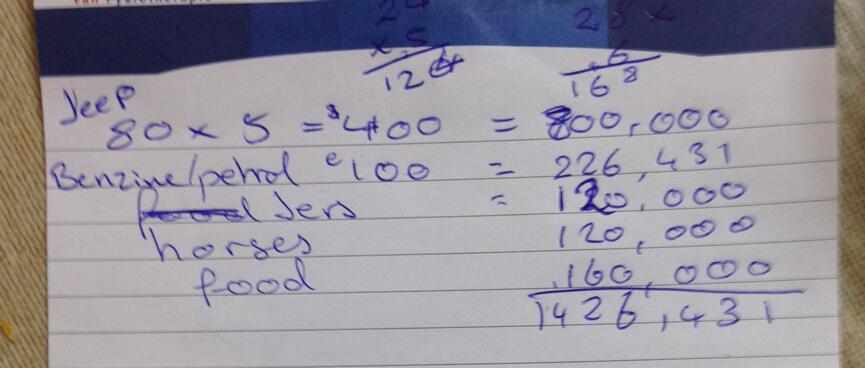 24 28 x
x .5 .6
120 168
Jeep
80 x 5 = $400 = 800,000
Benzine/petrol €100 = 226,431
gers = 120,000
horses 120,000
food 160,000
1426,431